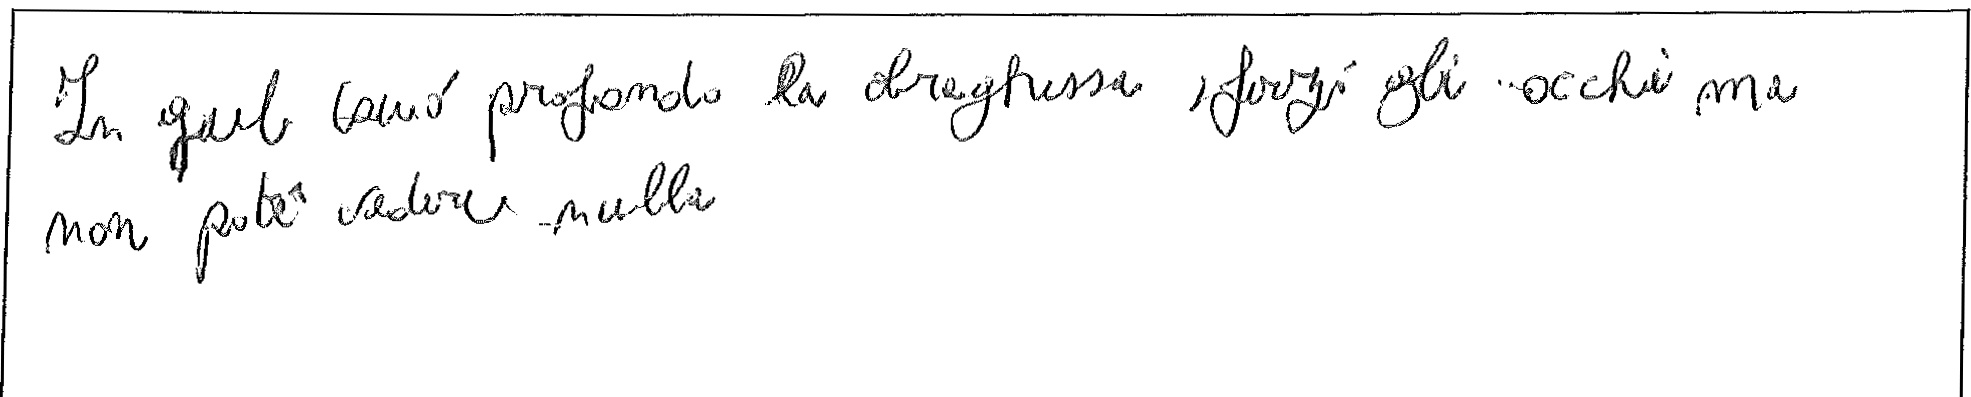 In quel profondo la draghessa sforzò gli occhi ma
non poté vedere nulla